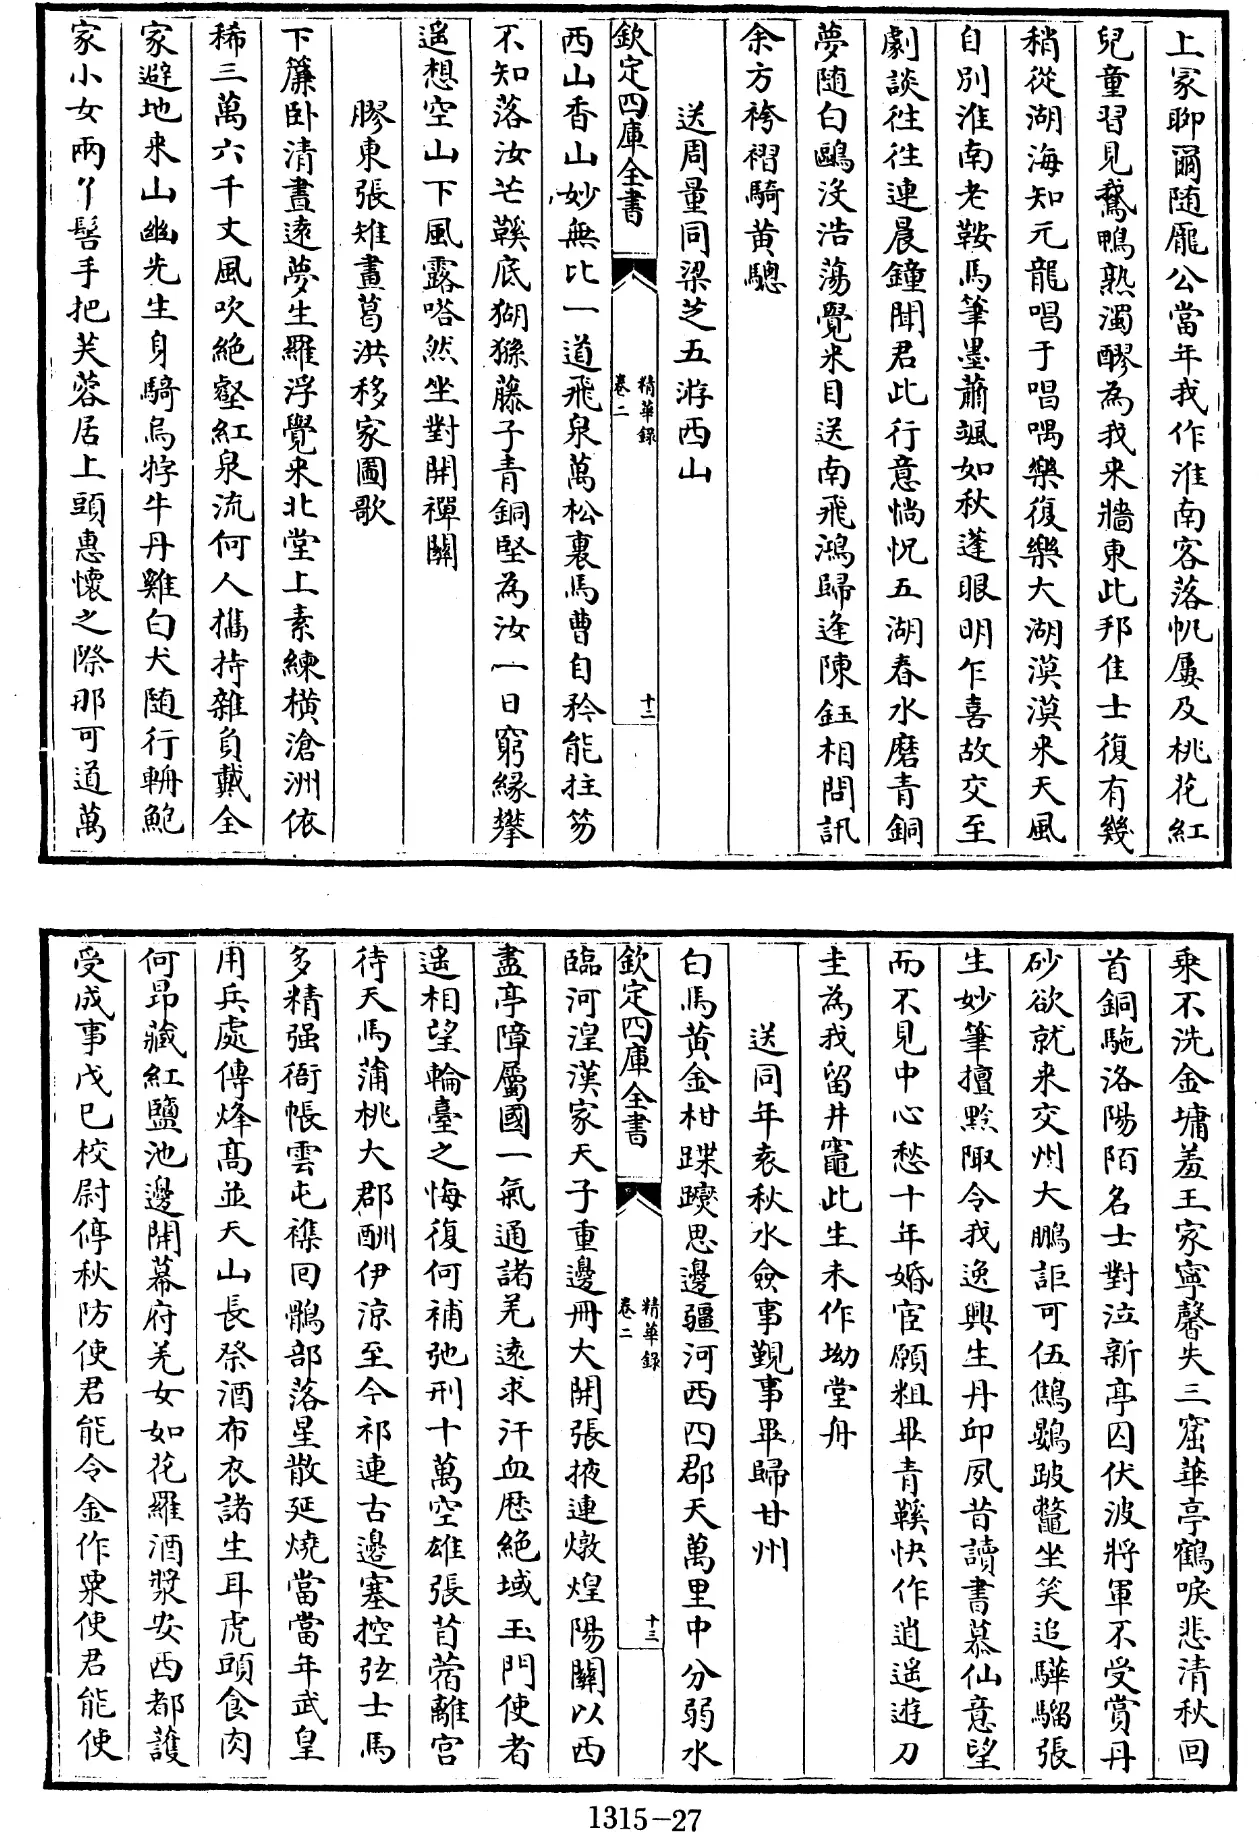 上冢聊爾随龐公當年我作淮南客落帆屢及桃花紅
兒童習見鵞鴨熟濁醪為我來牆東此邦佳士復有幾
稍從湖海知元龍唱于唱喁樂復樂大湖漠漠来天風
自別淮南老鞍馬筆墨蕭颯如秋蓬眼明乍喜故交至
劇談往往連晨鐘聞君此行意惝怳五湖春水磨青銅
夢随白鷗沒浩蕩覺来目送南飛鴻歸逢陳鈺相問訊
余方袴褶騎黄驄
送周量同梁芝五游西山
欽定四庫全書
精華録
卷二
十二
西山香山妙無比一道飛泉萬松裏馬曹自矜能拄笏
不知落汝芒鞵底猢猻藤子青銅堅為汝一日窮緣攀
遥想空山下風露嗒然坐對開禪關
膠東張雉畫葛洪移家圖歌
下簾卧清晝遠夢生羅浮覺来北堂上素練横滄洲依
稀三萬六千丈風吹絶壑紅泉流何人攜持雜負戴全
家避地来山幽先生身騎烏牸牛丹雞白犬随行輈鮑
家小女兩丫髻手把芙蓉居上頭惠懷之際那可道萬
乘不洗金墉羞王家寧馨失三窟華亭鶴唳悲清秋回
首銅駞洛陽陌名士對泣新亭囚伏波將軍不受賞丹
砂欲就来交州大鵬詎可伍鷦鷃跛鼈坐笑追驊騮張
生妙筆擅黔陬令我逸興生丹邱夙昔讀書慕仙意望
而不見中心愁十年婚宦願粗畢青鞵快作逍遥遊刀
圭為我留井竈此生未作坳堂舟
送同年袁秋水僉事覲事畢歸甘州
白馬黄金柑蹀躞思邊疆河西四郡天萬里中分弱水
欽定四庫全書
精華録
卷二
十三
臨河湟漢家天子重邊冊大開張掖連燉煌陽關以西
盡亭障屬國一氣通諸羌遠求汗血歴絶域玉門使者
遥相望輪臺之悔復何補弛刑十萬空雄張苜蓿離宫
待天馬蒲桃大郡酬伊涼至今祁連古邊塞控弦士馬
多精强衙帳雲屯襍回鶻部落星散延燒當當年武皇
用兵處傳烽髙並天山長祭酒布衣諸生耳虎頭食肉
何昂藏紅鹽池邊開幕府羌女如花羅酒漿安西都護
受成事戊巳校尉停秋防使君能令金作粟使君能使
1315-27